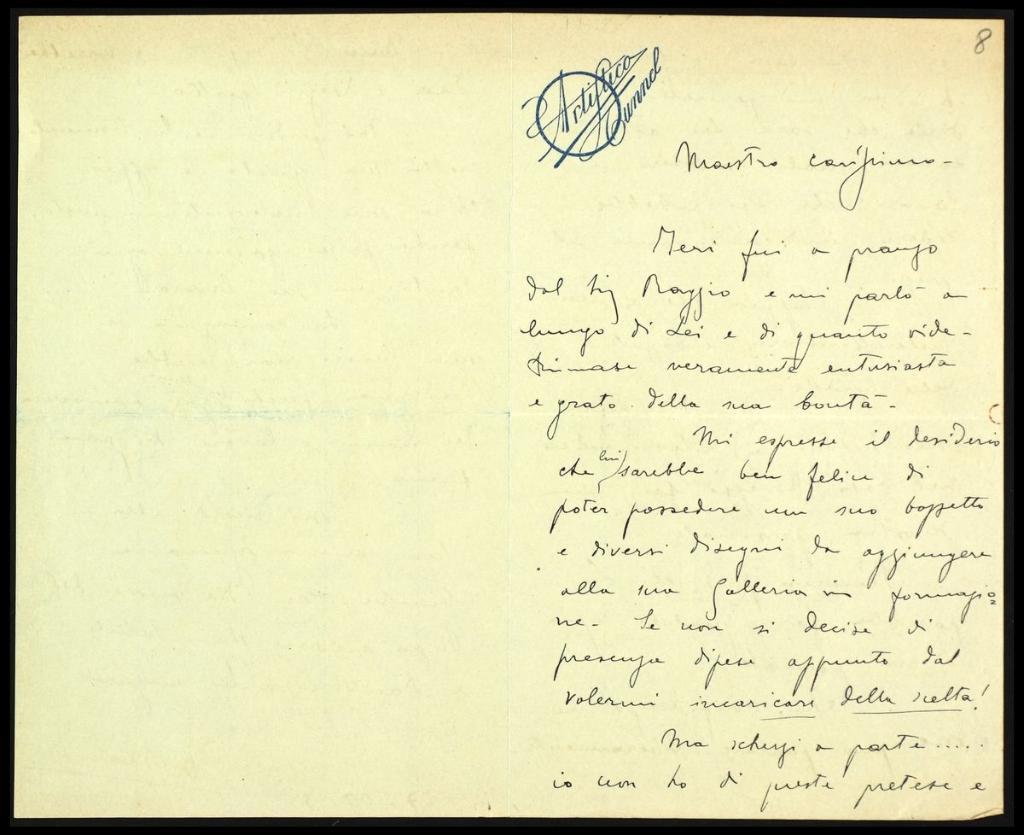 8
Artistico
Tunnel
Maestro carissimo -
Ieri fui a pranzo
dal Sig Raggio e mi parlò a
lungo di Lei e di quanto vide -
Rimase veramente entusiasta
e grato della sua bontà -
Mi espresse il desiderio
che lui sarebbe ben felice di
poter possedere un suo bozzetto
e diversi disegni da aggiungere
alla sua Galleria in formazio=
ne - Se non si decise di
presenza dipese appunto dal
volermi incaricare della scelta!
Ma scherzi a parte.....
io non ho di queste pretese e